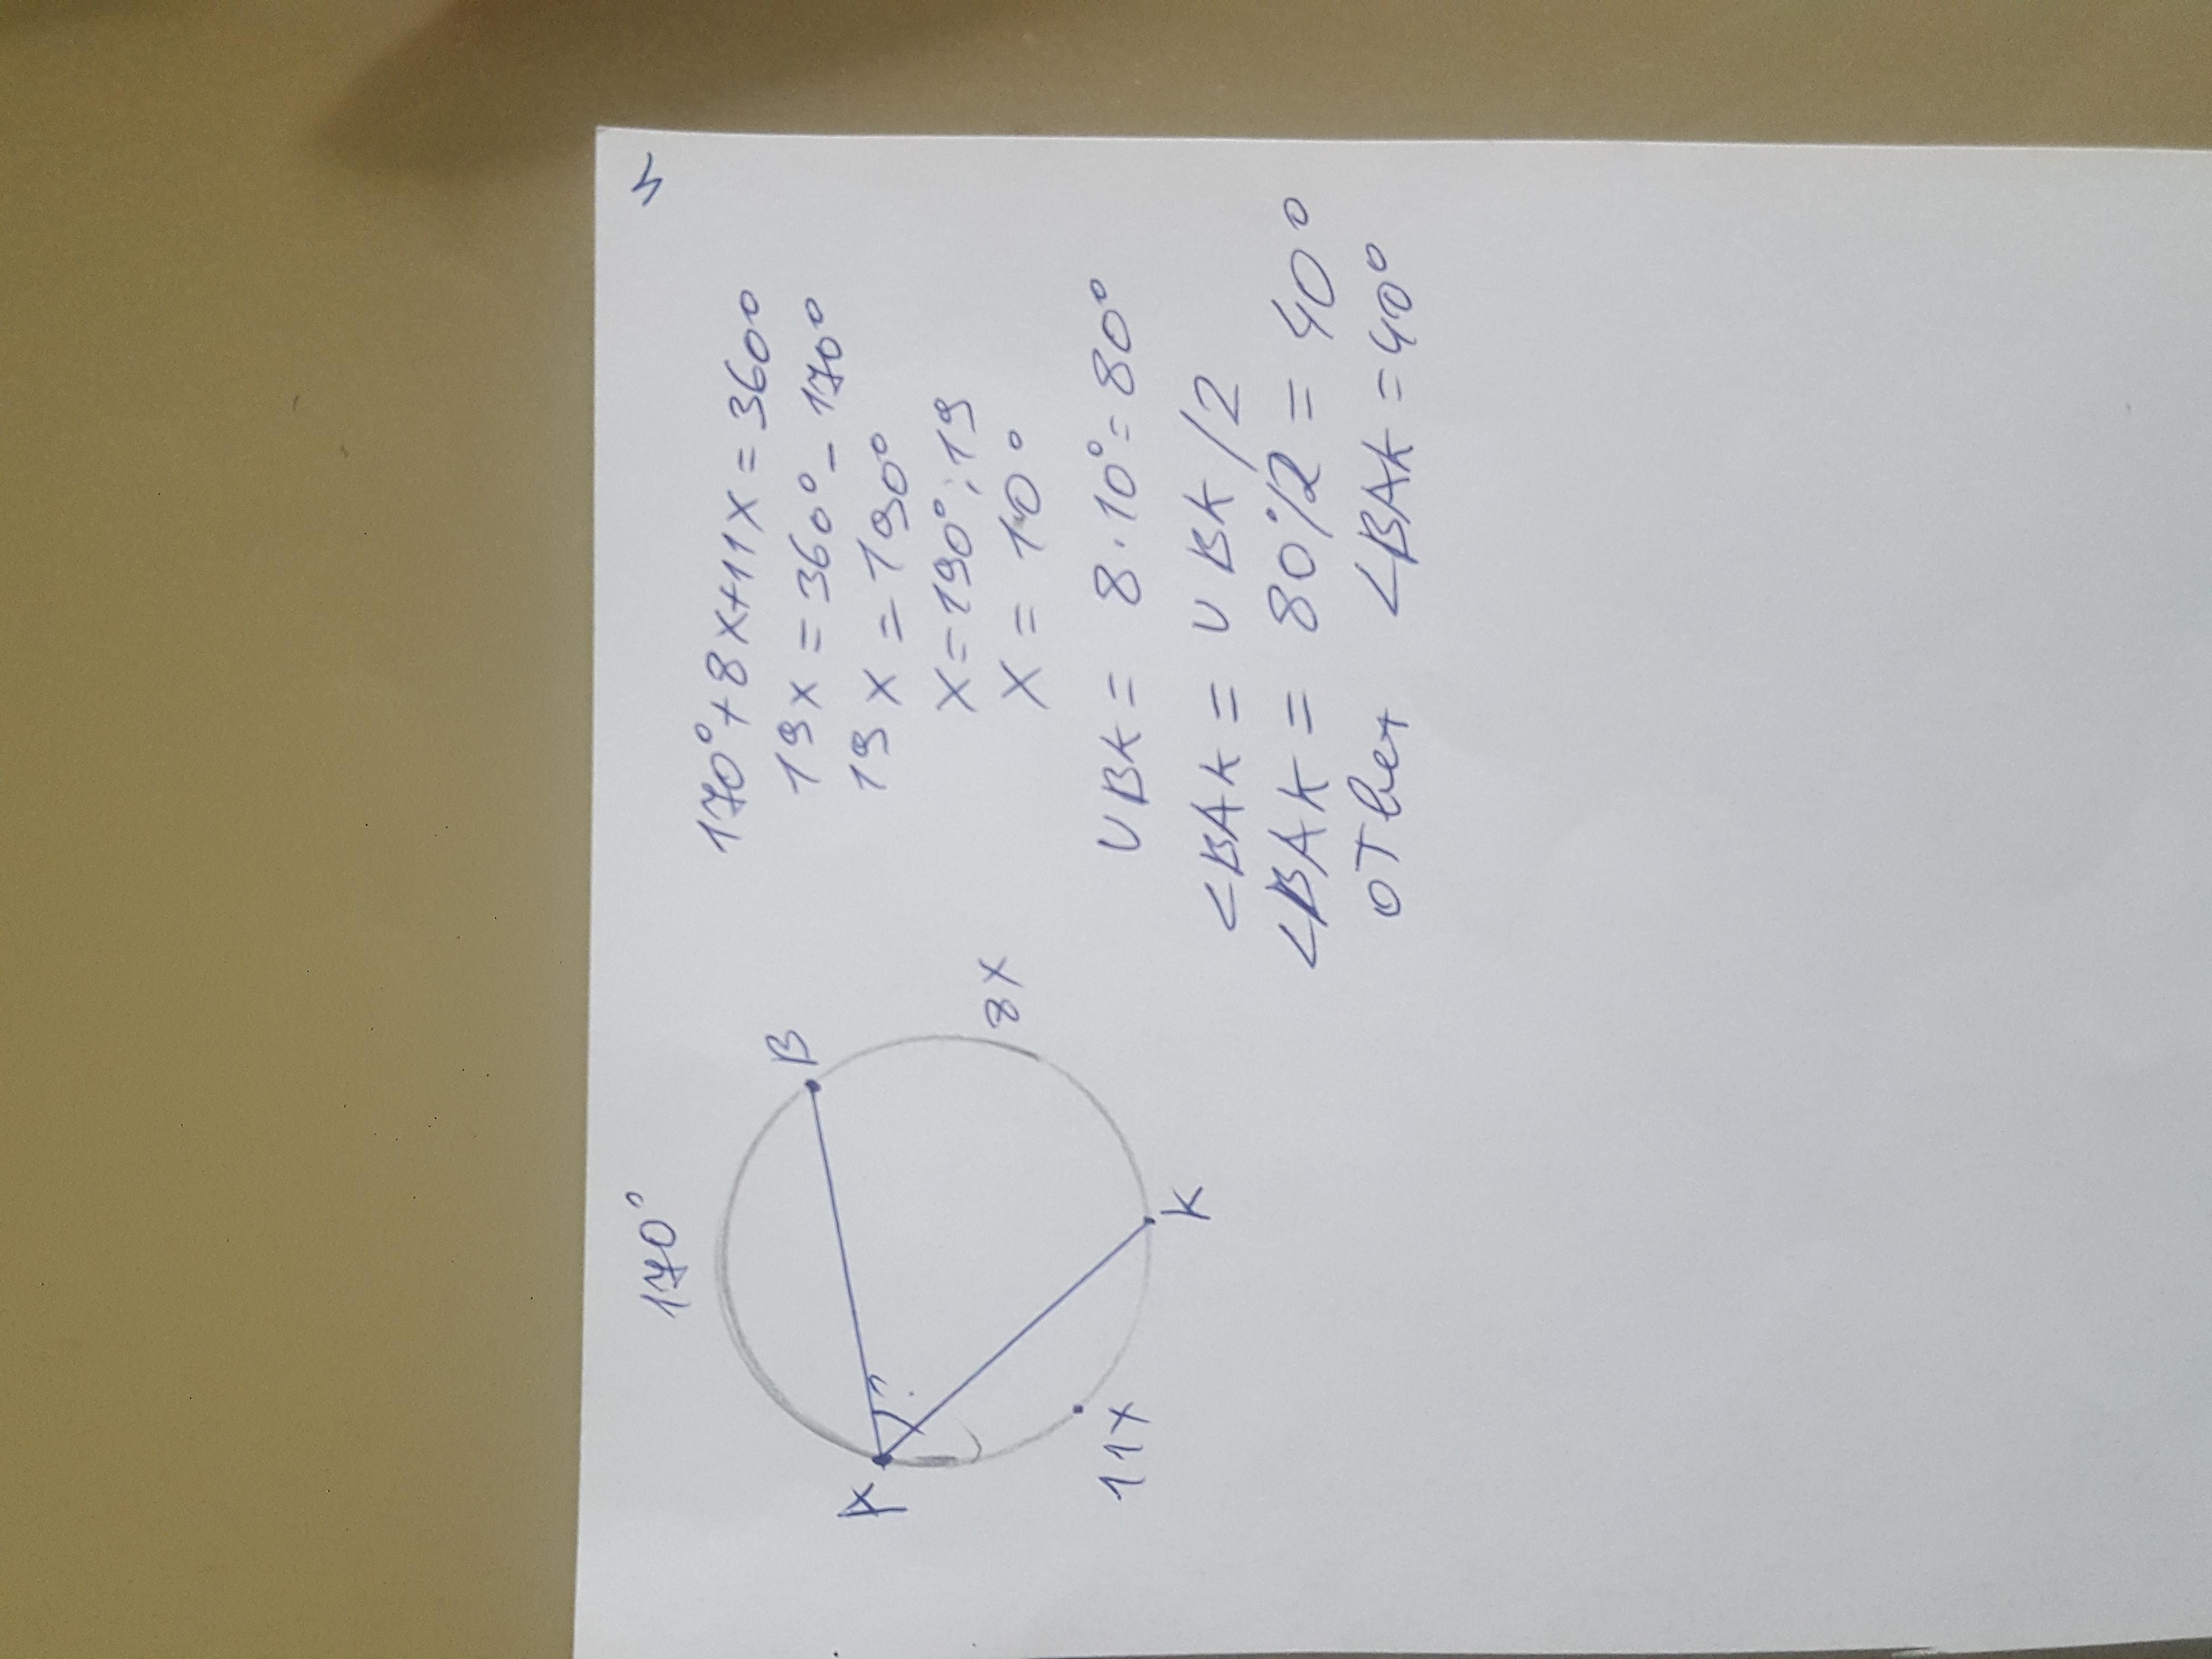 4
170°
A
B
8x
K
11x
170°+8x+11x=360°
19x=360°-170°
19x=190°
x=190°:19
x=10°
∪BK= 8·10°=80°
<BAK=∪BK/2
<BAK=80°/2=40°
ответ <BAK=40°